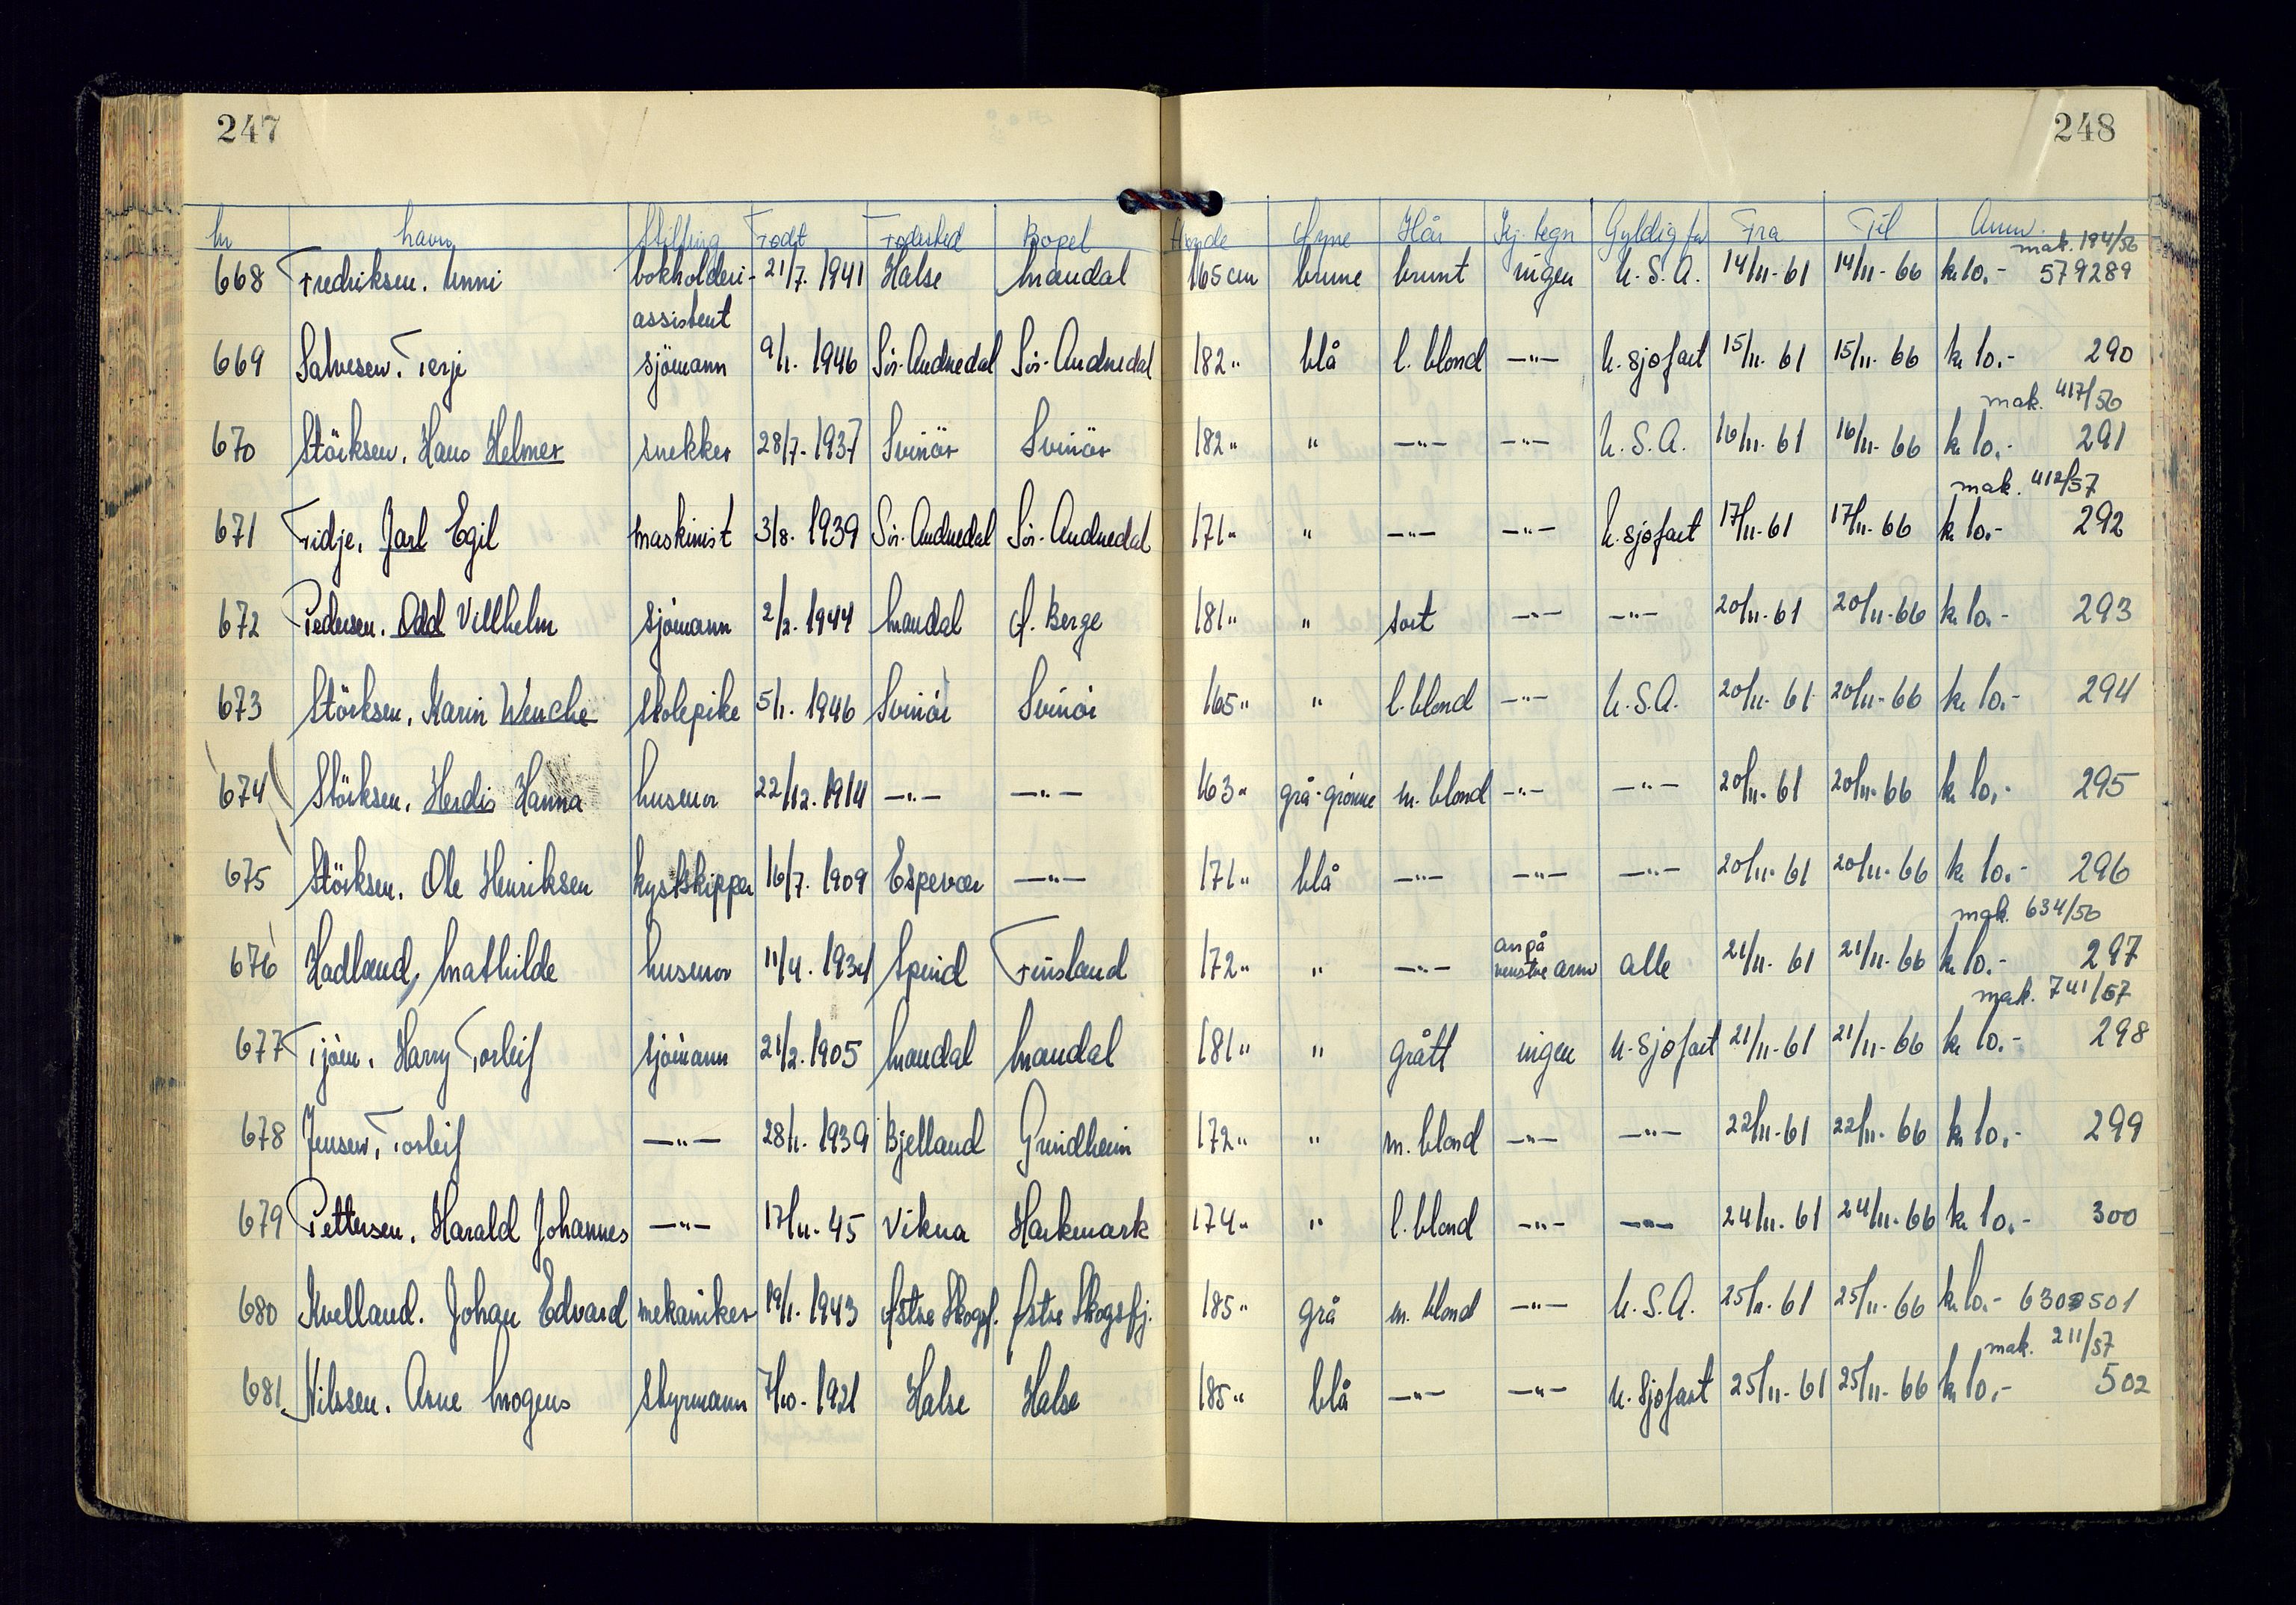 247
248
Nr Navn Stilling Født Fødested Bopel Høyde Øyne Hår Kj. tegn Gyldig for Fra Til Anm.
mak. 194/56
668 Fredriksen. Unni bokholderi- 21/7. 1941 Halse Mandal 165 cm brune brunt ingen U.S.A. 14/11-61 14/11-66 kr 10.- 579289
assistent
669 Salvesen. Terje sjömann 9/1. 1946 Sör-Audnedal Sör-Audnedal 182 " blå l. blond —"— u. sjøfart 15/11-61 15/11-66 kr 10.- 290
mak. 417/56
670 Störksen. Hans Helmer snekker 28/7-1937 Svinör Svinör 182 " " —"— —"— U.S.A. 16/11-61 16/11-66 kr 10.- 291
mak. 412/57
671 Fidje. Jarl Egil maskinist 3/8. 1939 Sör-Audnedal Sör-Audnedal 171 " " —"— —"— u. sjøfart 17/11-61 17/11-66 kr 10.- 292
672 Pedersen. Odd Villhelm sjömann 2/2. 1944 Mandal Ø. Berge 181 " " sort —"— —"— 20/11-61 20/11-66 kr 10.- 293
673 Störksen. Karin Wenche skolepike 5/1. 1946 Svinör Svinör 165 " " l. blond —"— U.S.A. 20/11-61 20/11-66 kr 10.- 294
674 Störksen. Herdis Hanna husmor 22/12. 1914 —"— —"— 163 " grå-grønne m. blond —"— —"— 20/11-61 20/11-66 kr 10.- 295
675 Störksen. Ole Henriksen kystskipper 16/7. 1909 Espevær —"— 171 " blå —"— —"— —"— 20/11-61 20/11-66 kr 10.- 296
mak. 634/56
676 Hadland, Mathilde husmor 11/4. 1934 Spind Finsland 172 " " —"— arr på venstre arm alle 21/11-61 21/11-66 kr 10.- 297
mak. 741/57
677 Tjöm. Harry Torleif sjömann 21/2. 1905 Mandal Mandal 181 " " grått ingen u. sjøfart 21/11-61 21/11-66 kr 10.- 298
678 Jensen, Torleif —"— 28/1. 1939 Bjelland Grindheim 172 " " m. blond —"— —"— 22/11-61 22/11-66 kr 10.- 299
679 Pettersen. Harald Johannes —"— 17/11-45 Vikna Harkmark 174 " " l. blond —"— —"— 24/11-61 24/11-66 kr 10.- 300
680 Kvelland. Johan Edvard mekaniker 19/1. 1943 Østre Skogsf. Østre Skogsfj. 185 " grå m. blond —"— U.S.A. 25/11-61 25/11-66 kr 10.- 630501
mak. 211/57
681 Nilssen. Arne Mogens styrmann 7/10-1921 Halse Halse 185 " blå —"— —"— u. Sjøfart 25/11-61 25/11-66 kr 10.- 502